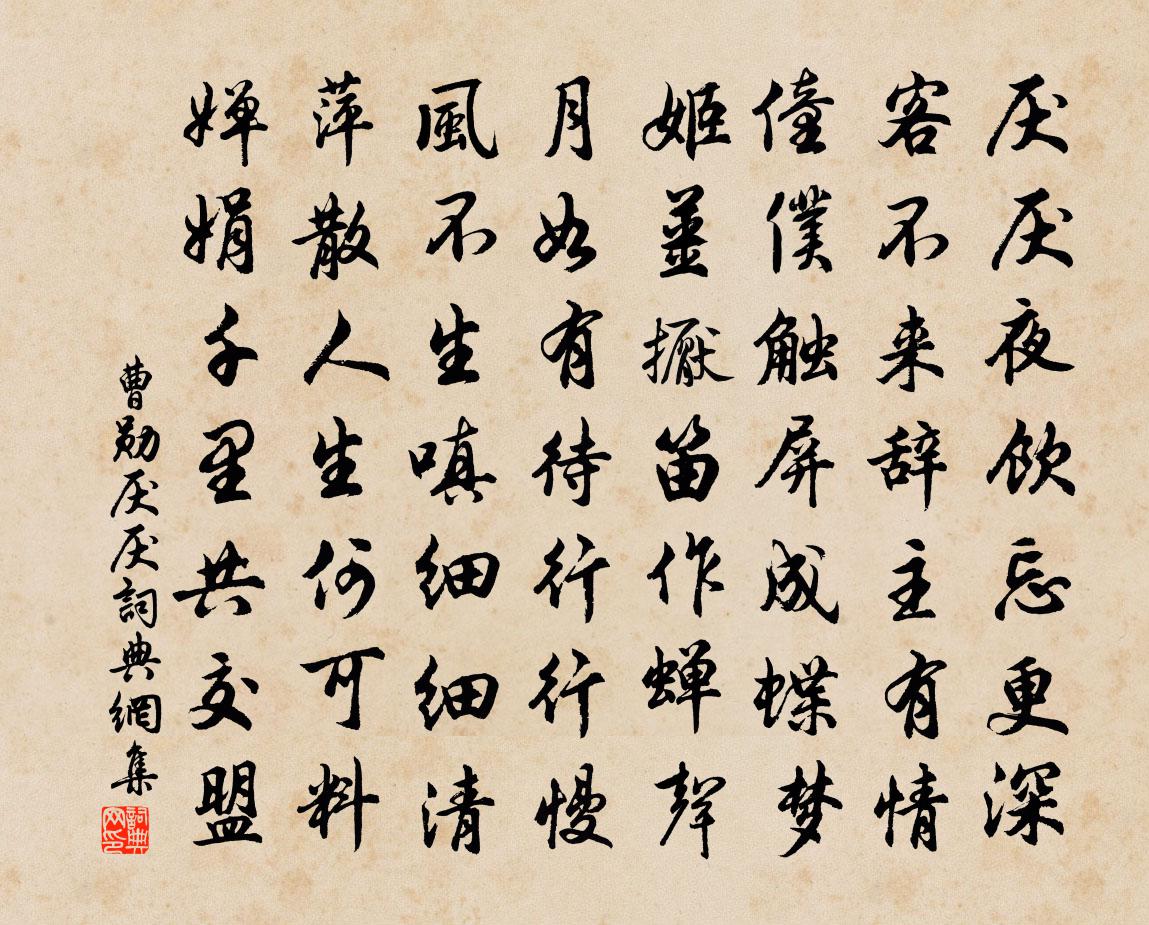 厌厌夜饮忘更深
客不来辞主有情
僮仆触屏成蝶梦
姬姜擫笛作蝉声
月如有待行行慢
風不生嗔细细清
萍散人生何可料
婵娟千里共交盟
曹勋厌厌詞典網集
詞典网印